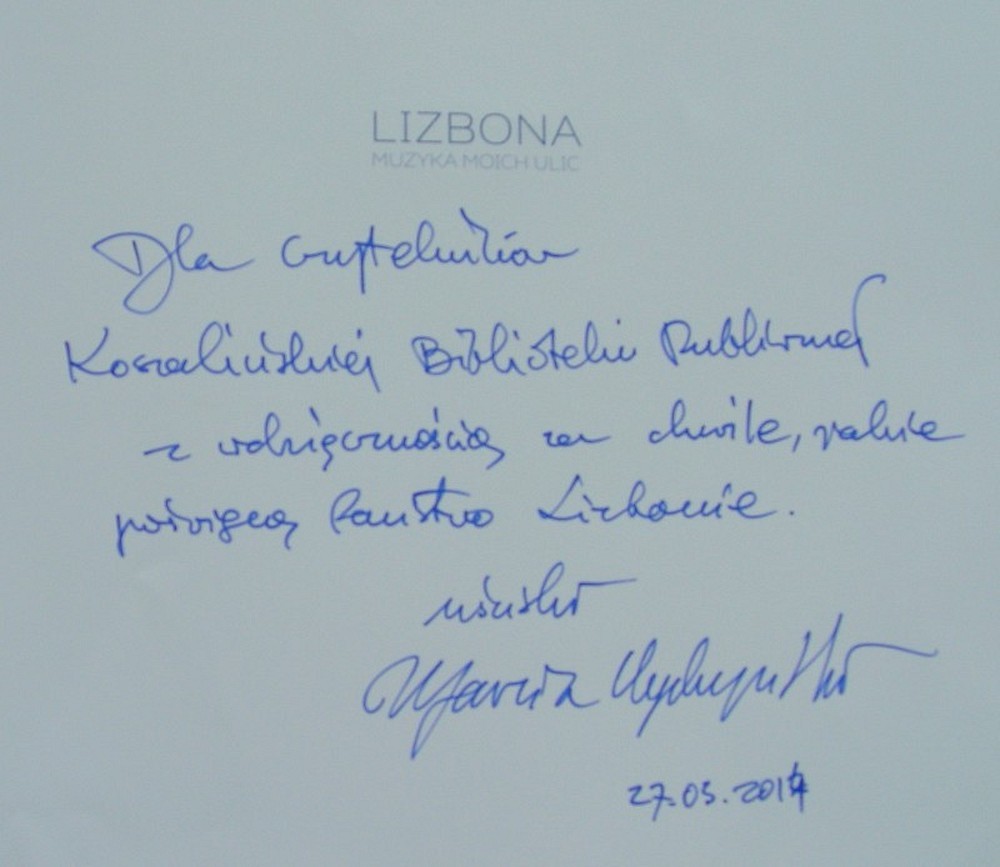 LIZBONA
MUZYKA MOICH ULIC
Dla Czytelników
Koszalińskiej Biblioteki Publicznej
z wdzięcznością za chwile, jakie
poświęcą Państwo Lizbonie.
uściski
Marcin Kydryński
27.05.2014